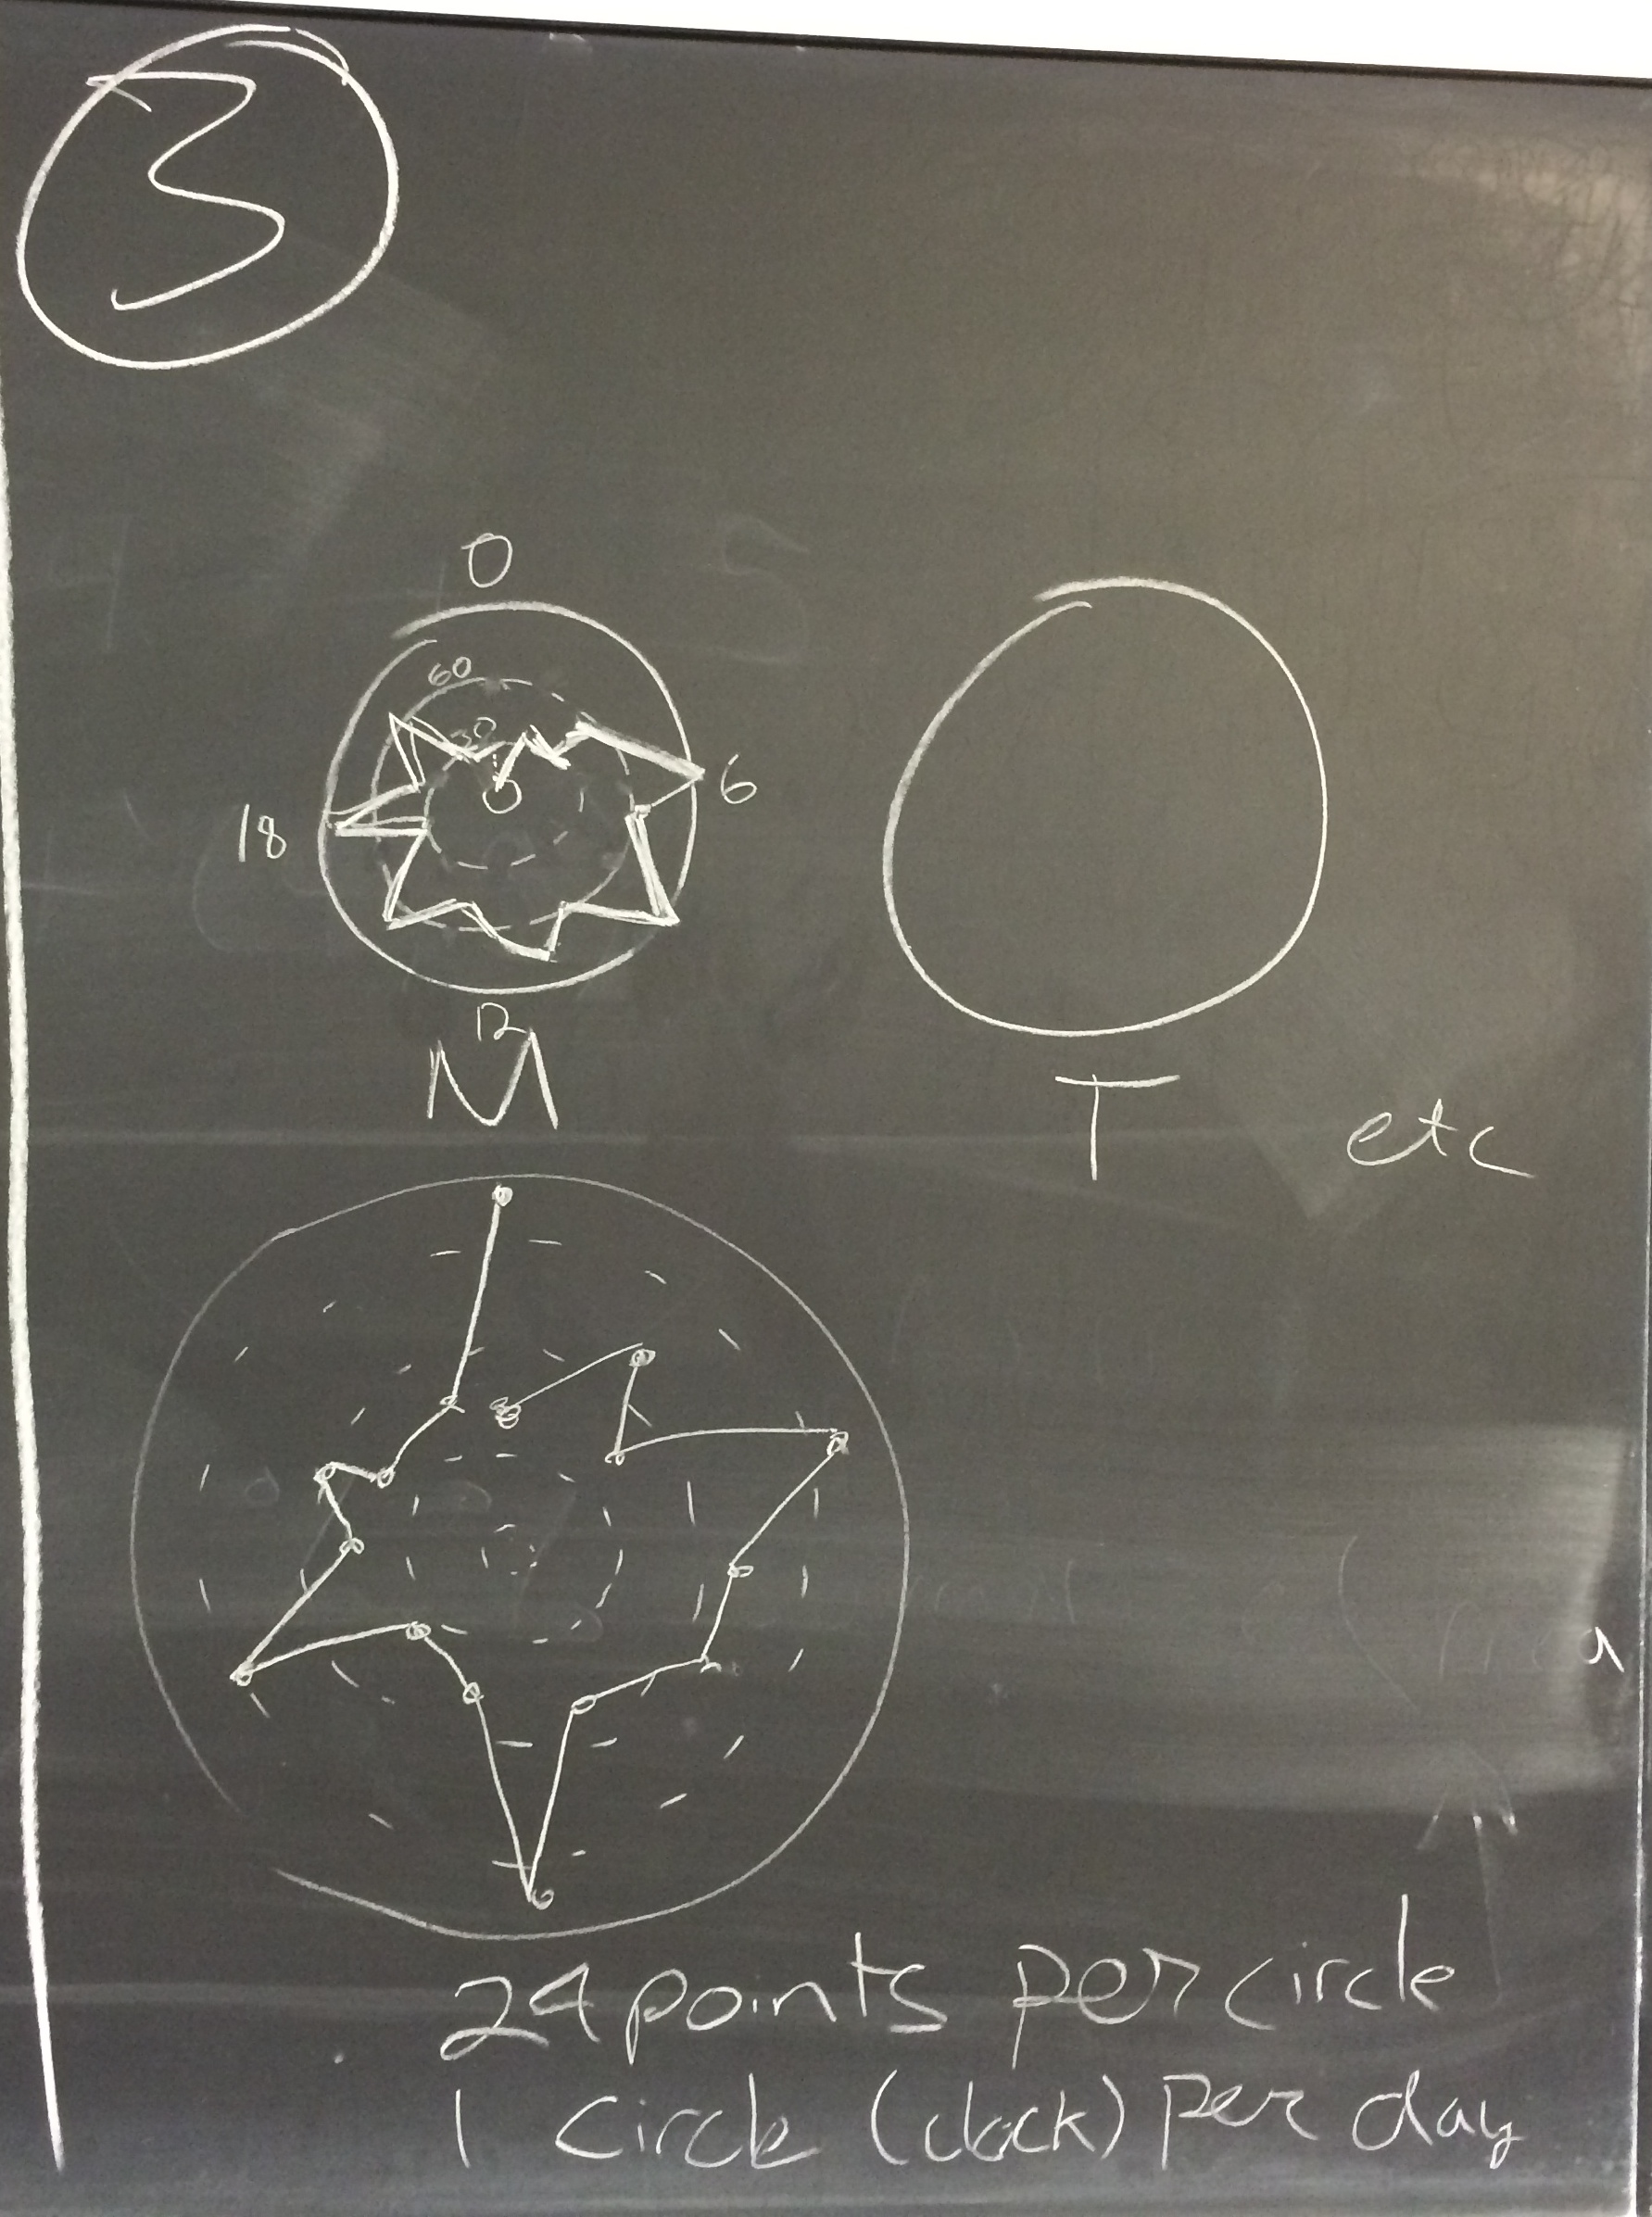 3
0
60
30
0
6
18
12
M
T etc
24 points per circle
1 circle (clock) per day